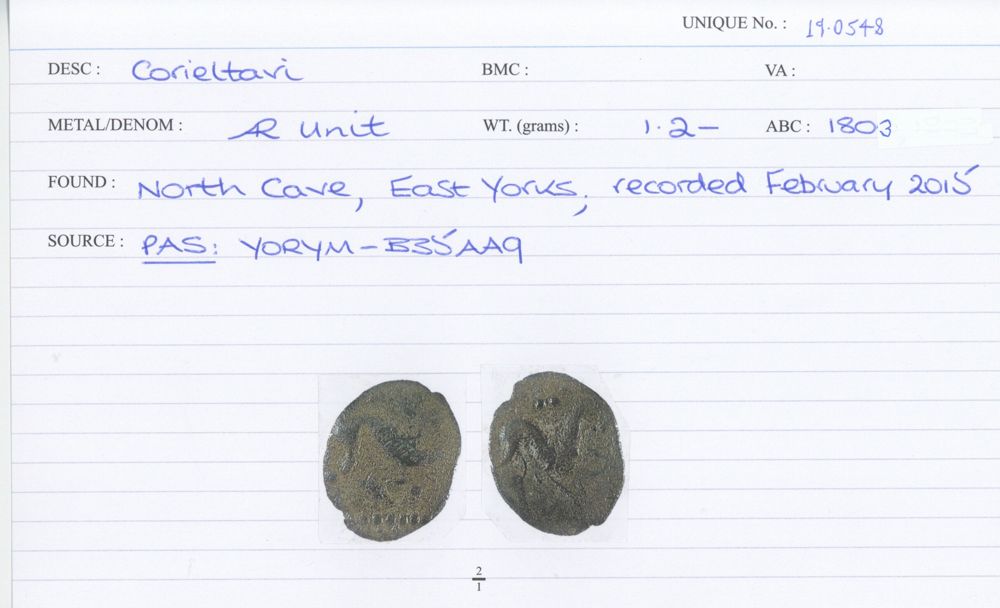 UNIQUE No. : 19.0548
DESC : Corieltavi BMC : VA :
METAL/DENOM : AR unit WT. (grams) : 1.2– ABC : 1803
FOUND : North Cave, East Yorks; recorded February 2015
SOURCE : PAS: YORYM-B35AA9
2
1